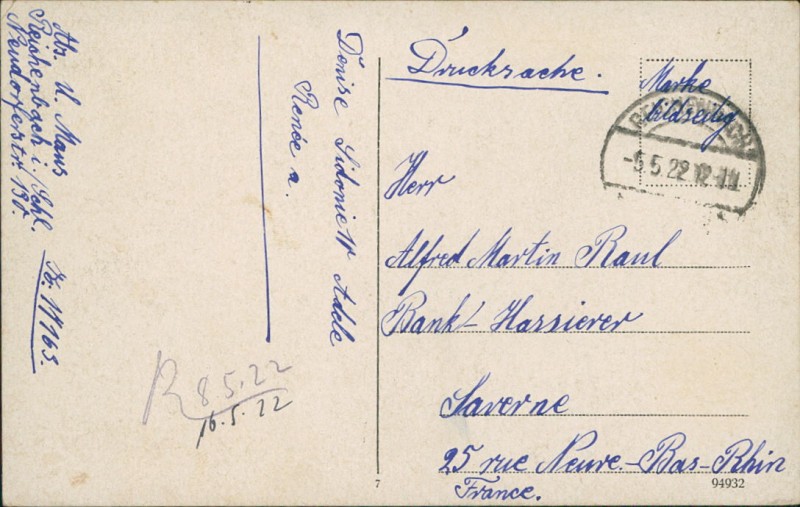 Abs. U. Maus
Reichenbach i./Schl.
Neudorferstr. 13
Denise Sidonie Adele
Renée a.
R 8 5.22
16.5.22
Drucksache.
Marke
bildseitig
-5.5.22 12-1N
Herr
Alfred Martin Raul
Bank- Hassierer
Saverne
25 rue Neuve.-Bas-Rhin
France.
7
94932